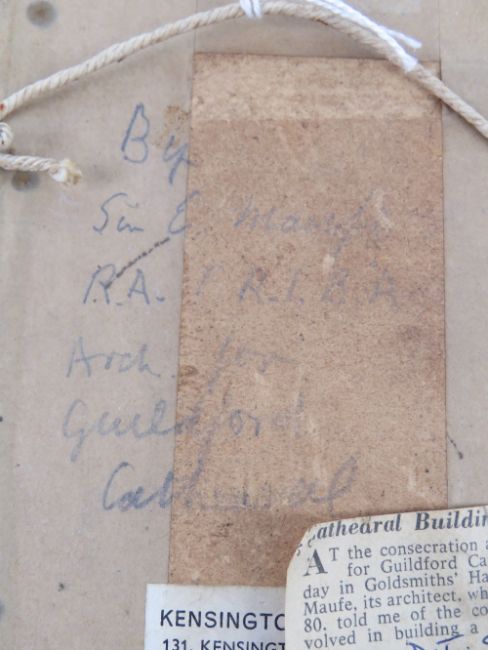 By
Sir E. Maufe
R.A. F R.I.B.A
Arch. for
Guildford
Cathedral
Cathedral Buildin
AT the consecration a
for Guildford Ca
day in Goldsmiths' Ha
Maufe, its architect, wh
80, told me of the co
volved in building a
KENSINGTO
131, KENSINGT